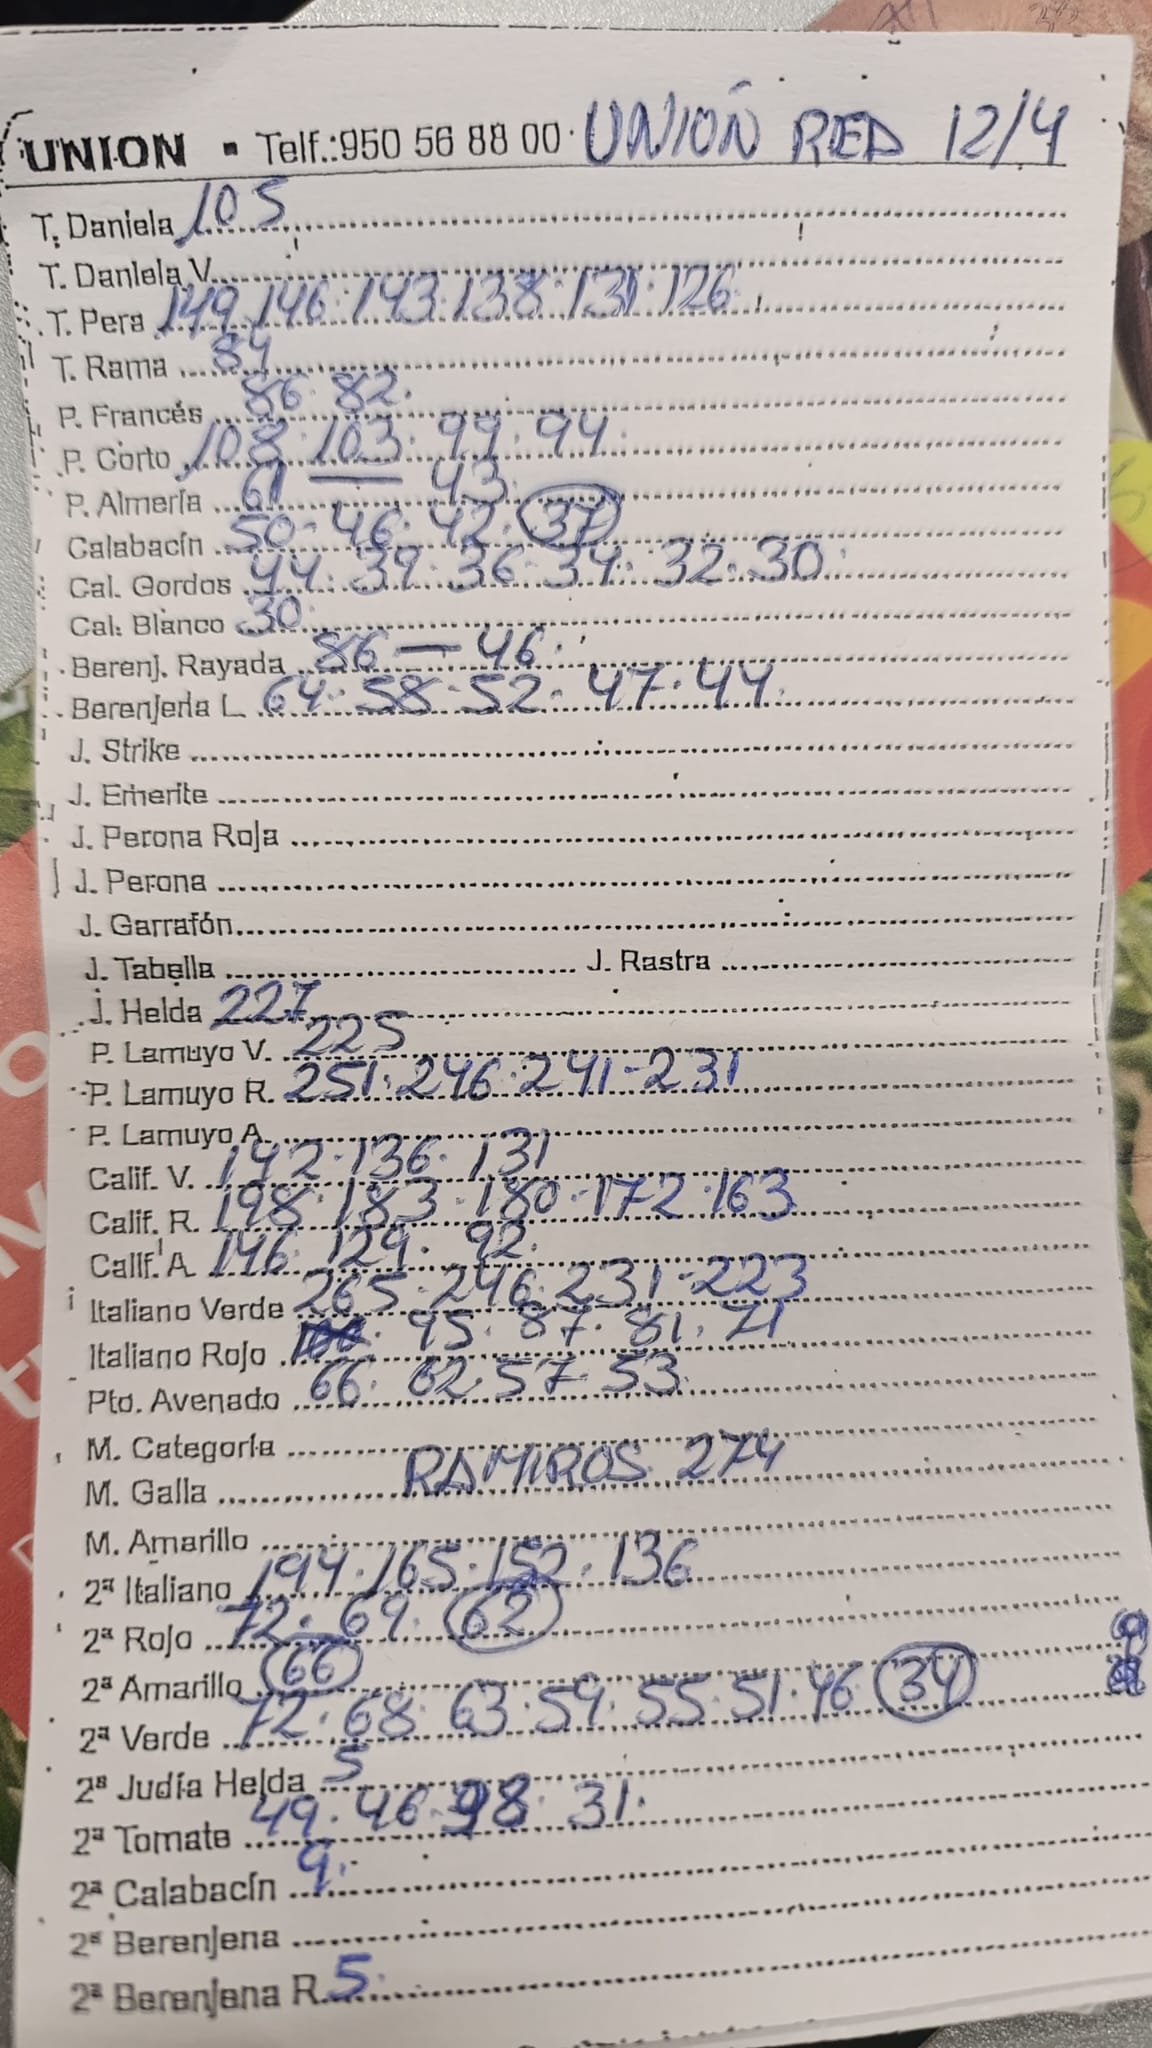 UNION ▪ Telf.:950 56 88 00 · UNIÓN RED 12/4
T. Daniela 105
T. Daniela V.
T. Pera 149 146 · 143 · 138 · 131 · 126
T. Rama 84
P. Francés 86 82.
P. Corto 108 · 103 · 99 · 94
P. Almería 61 — 43
Calabacín 50 - 46 · 42 · 37
Cal. Gordos 44 · 39 · 36 · 34 · 32 · 30
Cal. Blanco 30
Berenj. Rayada 86 — 46
Berenjena L 64 · 58 · 52 · 47 · 44
J. Strike
J. Emerite
J. Perona Roja
J. Perona
J. Garrafón
J. Tabella J. Rastra
J. Helda 227
P. Lamuyo V. 225
P. Lamuyo R. 251 · 246 · 241 - 231
P. Lamuyo A
Calif. V. 142 · 136 · 131
Calif. R. 198 · 183 · 180 · 172 · 163
Calif. A 146 · 129 · 92
Italiano Verde 265 · 246 · 231 - 223
Italiano Rojo 95 · 87 · 81 · 71
Pto. Avenado 66 · 62 · 57 - 53
M. Categoría
M. Galla RAMIROS 274
M. Amarillo
2ª Italiano 194 · 165 · 152 · 136
2ª Rojo 72 · 69 · 62
2ª Amarillo 66
2ª Verde 72 · 68 · 63 · 59 · 55 · 51 · 46 34
2ª Judía Helda 5
2ª Tomate 49 · 46 · 31
2ª Calabacín 9
2ª Berenjena
2ª Berenjena R. 5